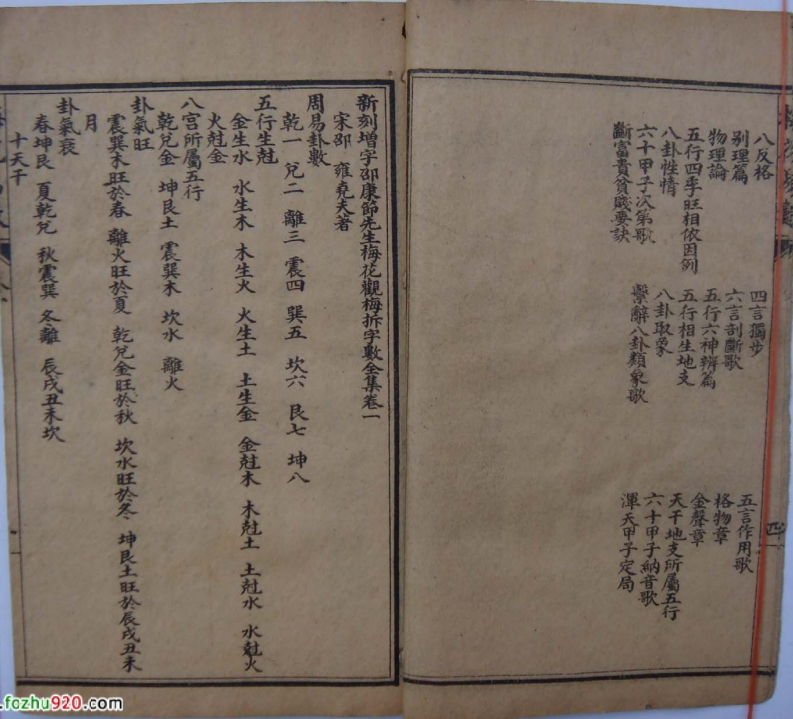 八反格
别理篇
物理論
五行四季旺相依因例
八卦性情
六十甲子次第歌
斷富貴貧賤要訣
四言獨步
六言剖斷歌
五行六神辨篇
五行相生地支
八卦取象
繫辭八卦類象歌
五言作用歌
格物章
金聲章
天干地支所屬五行
六十甲子納音歌
渾天甲子定局
四
新刻增字邵康節先生梅花觀梅拆字數全集卷一
宋邵 雍堯夫著
周易卦數
乾一 兌二 離三 震四 巽五 坎六 艮七 坤八
五行生尅
金生水 水生木 木生火 火生土 土生金 金尅木 木尅土 土尅水 水尅火
火尅金
八宮所屬五行
乾兌金 坤艮土 震巽木 坎水 離火
卦氣旺
震巽木旺於春 離火旺於夏 乾兌金旺於秋 坎水旺於冬 坤艮土旺於辰戌丑未
月
卦氣衰
春坤艮 夏乾兌 秋震巽 冬離 辰戌丑未坎
十天干
.fozhu920.com